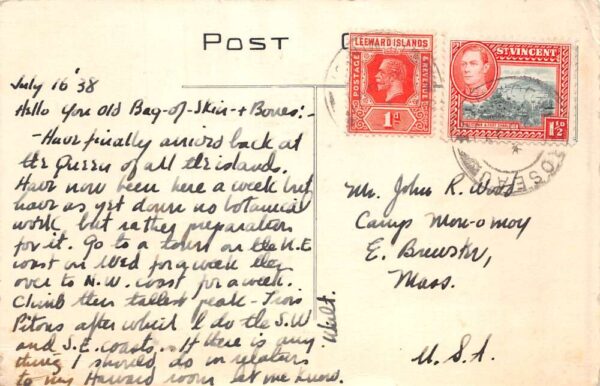 POST C
LEEWARD ISLANDS
POSTAGE
& REVENUE
1d
ST VINCENT
1½D
ROSEAU
July 16 '38
Hello you old Bag-of-Skin-+Bones:-
-Have finally arrived back at
the Queen of all the islands.
Have now been here a week but
have as yet done no botanical
work but rather preparation
for it. Go to a town on the N.E
coast on Wed for a week then
over to N.W. coast for a week.
Climb then tallest peak - Trois
Pitons after which I do the S.W
and S.E. coasts. If there is any
thing I should do in relation
to my Harvard room let me know.
Walt.
Mr. John R. Wood
Camp Mon-o-moy
E. Brewster,
Mass.
U.S.A.